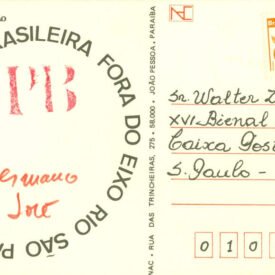 BRASILEIRA FORA DO EIXO RIO SÃO PA
PB
José
NAC • RUA DAS TRINCHEIRAS, 275 • 58.000 • JOÃO PESSOA, PARAÍBA
NAC
Sr. Walter Z
XVI Bienal
Caixa Post
S. Paulo -
0 1 0